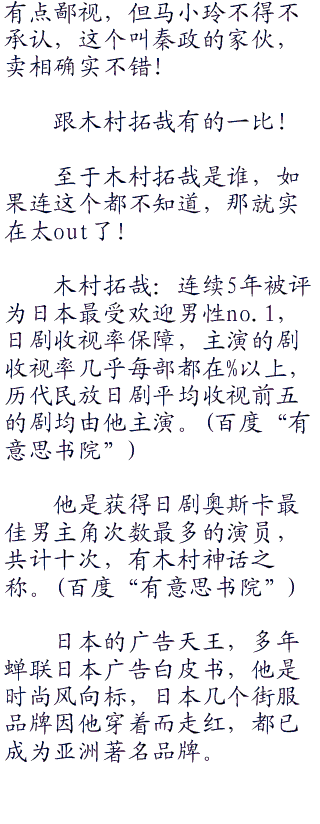 有点鄙视，但马小玲不得不
承认，这个叫秦政的家伙，
卖相确实不错！
跟木村拓哉有的一比！
至于木村拓哉是谁，如
果连这个都不知道，那就实
在太out了！
木村拓哉：连续5年被评
为日本最受欢迎男性no.1，
日剧收视率保障，主演的剧
收视率几乎每部都在%以上，
历代民放日剧平均收视前五
的剧均由他主演。(百度“有
意思书院”)
他是获得日剧奥斯卡最
佳男主角次数最多的演员，
共计十次，有木村神话之
称。(百度“有意思书院”)
日本的广告天王，多年
蝉联日本广告白皮书，他是
时尚风向标，日本几个街服
品牌因他穿着而走红，都已
成为亚洲著名品牌。